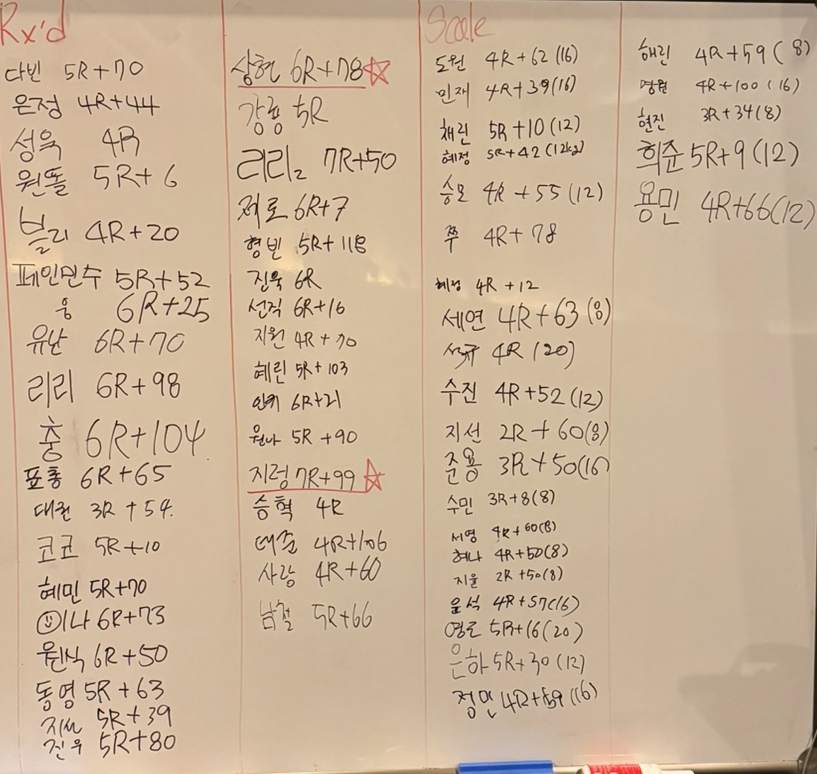 Rx'd
다빈 5R+70
은정 4R+44
성욱 4R
원똘 5R+6
블리 4R+20
페인민수 5R+52
웅 6R+25
유난 6R+70
리리 6R+98
충 6R+104
표홍 6R+65
대권 3R+54
코코 5R+10
혜민 5R+70
이나 6R+73
원식 6R+50
동영 5R+63
지선 5R+39
진우 5R+80
상현 6R+78
강홍 5R
리리2 7R+50
제로 6R+7
형빈 5R+118
진욱 6R
선직 6R+16
지원 4R+70
혜린 5R+103
6R+21
원나 5R+90
지렁 7R+99
승혁 4R
4R+106
사랑 4R+60
남철 5R+66
Scale
도원 4R+62 (16)
민재 4R+39 (16)
채린 5R+10 (12)
혜정 5R+42 (12kg)
승모 4R+55 (12)
쭈 4R+78
혜정 4R+12
세연 4R+63 (8)
4R (20)
수진 4R+52 (12)
지선 2R+60 (8)
준용 3R+50 (16)
수민 3R+8 (8)
서영 4R+60 (8)
혜나 4R+50 (8)
지윤 2R+50 (8)
윤석 4R+57 (16)
영로 5R+16 (20)
은하 5R+30 (12)
정민 4R+59 (16)
해린 4R+59 (8)
영원 4R+100 (16)
현진 3R+34 (8)
희준 5R+9 (12)
용민 4R+66 (12)